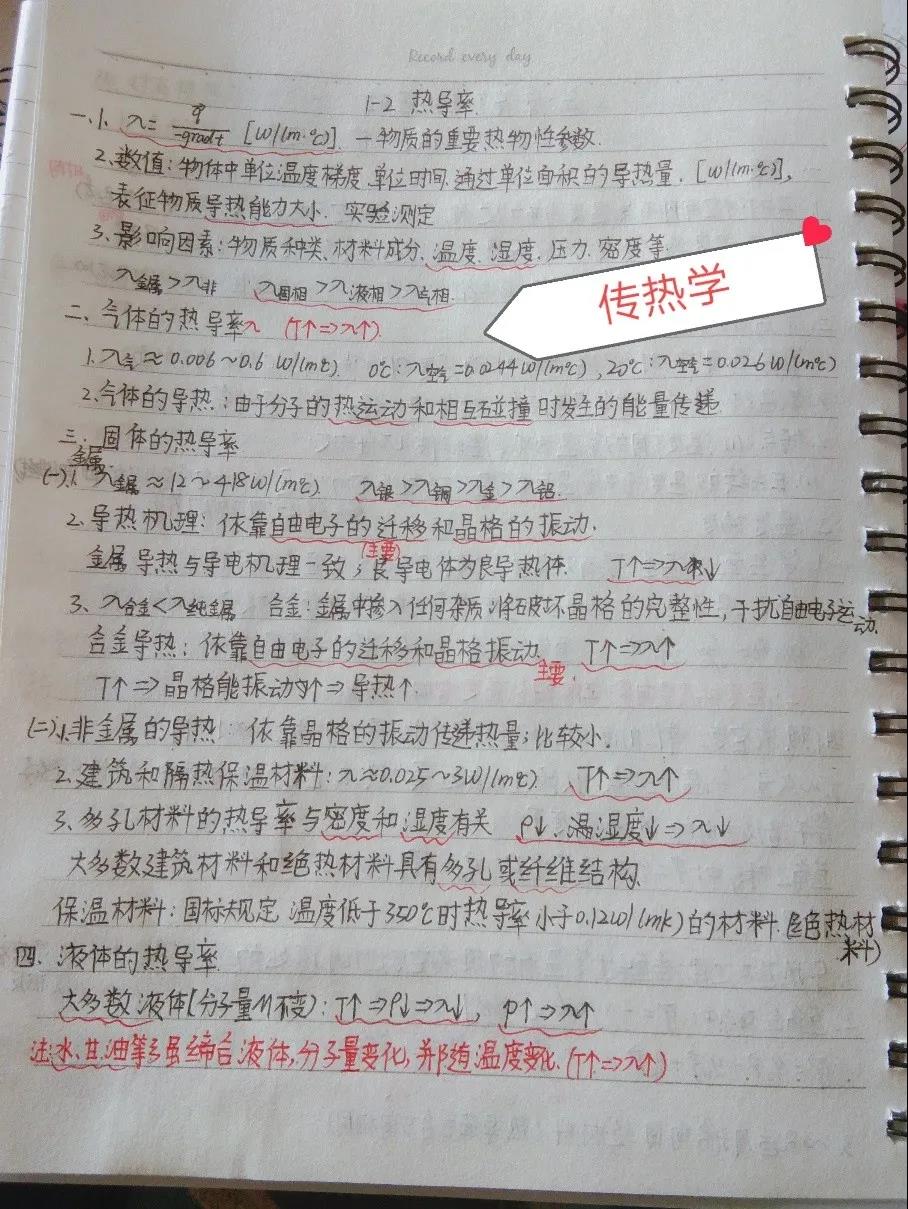 Record every day
1-2 热导率.
一、1. λ= q/-gradt [W/(m·℃)]. 一物质的重要热物性参数.
2.数值:物体中单位温度梯度.单位时间.通过单位面积的导热量. [W/(m·℃)],
表征物质导热能力大小. 实验测定
3.影响因素:物质种类、材料成分、温度、湿度、压力、密度等
λ金属>λ非 λ固相>λ液相>λ气相.
传热学
二、气体的热导率λ (T↑=>λ↑)
1.λ气≈0.006~0.6 W/(m℃). 0℃:λ空气=0.0244W/(m℃), 20℃:λ空气=0.026W/(m℃)
2.气体的导热:由于分子的热运动和相互碰撞时发生的能量传递.
三.固体的热导率
金属.
(一).1. λ金属≈12~418W/(m℃). λ银>λ铜>λ金>λ铝.
2.导热机理:依靠自由电子的迁移和晶格的振动.
(主要)
金属导热与导电机理一致;良导电体为良导热体. T↑=>λ↓
3、λ合金<λ纯金属 合金:金属中掺入任何杂质将破坏晶格的完整性,干扰自由电子运动.
合金导热:依靠自由电子的迁移和晶格振动. T↑=>λ↑
主要.
T↑=>晶格能振动↑=>导热↑.
(二)1.非金属的导热:依靠晶格的振动传递热量;比较小.
2.建筑和隔热保温材料:λ≈0.025~3W/(m℃) T↑=>λ↑
3、多孔材料的热导率与密度和湿度有关 ρ↓、湿度↓=>λ↓
大多数建筑材料和绝热材料具有多孔或纤维结构.
保温材料:国标规定,温度低于350℃时热导率小于0.12W/(mk)的材料.(绝热材料)
四.液体的热导率.
大多数液体(分子量M不变):T↑=>ρ↓=>λ↓, p↑=>λ↑
注:水、甘油等强缔合液体,分子量变化,并随温度变化.(T↑=>λ↑)